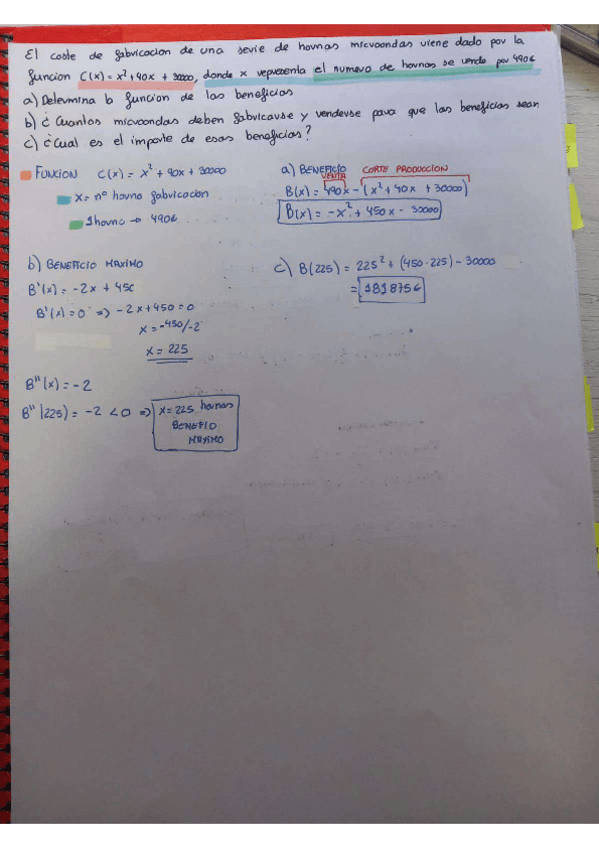 El coste de fabricacion de una serie de hornos microondas viene dado por la
funcion C(x) = x² + 40x + 30000, donde x representa el numero de hornos se vende por 490€
a) Determina la funcion de los beneficios
b) ¿Cuantos microondas deben fabricarse y venderse para que los beneficios sean
c) ¿Cual es el importe de esos beneficios?
FUNCION C(x) = x² + 40x + 30000
x = nº horno fabricacion
1 horno → 490€
a) BENEFICIO
VENTA
CORTE PRODUCCION
B(x) = 490x - (x² + 40x + 30000)
B(x) = -x² + 450x - 30000
b) BENEFICIO MAXIMO
B'(x) = -2x + 450
B'(x) = 0 => -2x + 450 = 0
x = -450/-2
x = 225
B''(x) = -2
B''(225) = -2 < 0 => x = 225 hornos
BENEFIO
MAXIMO
c) B(225) = 225² + (450·225) - 30000
= 181875€